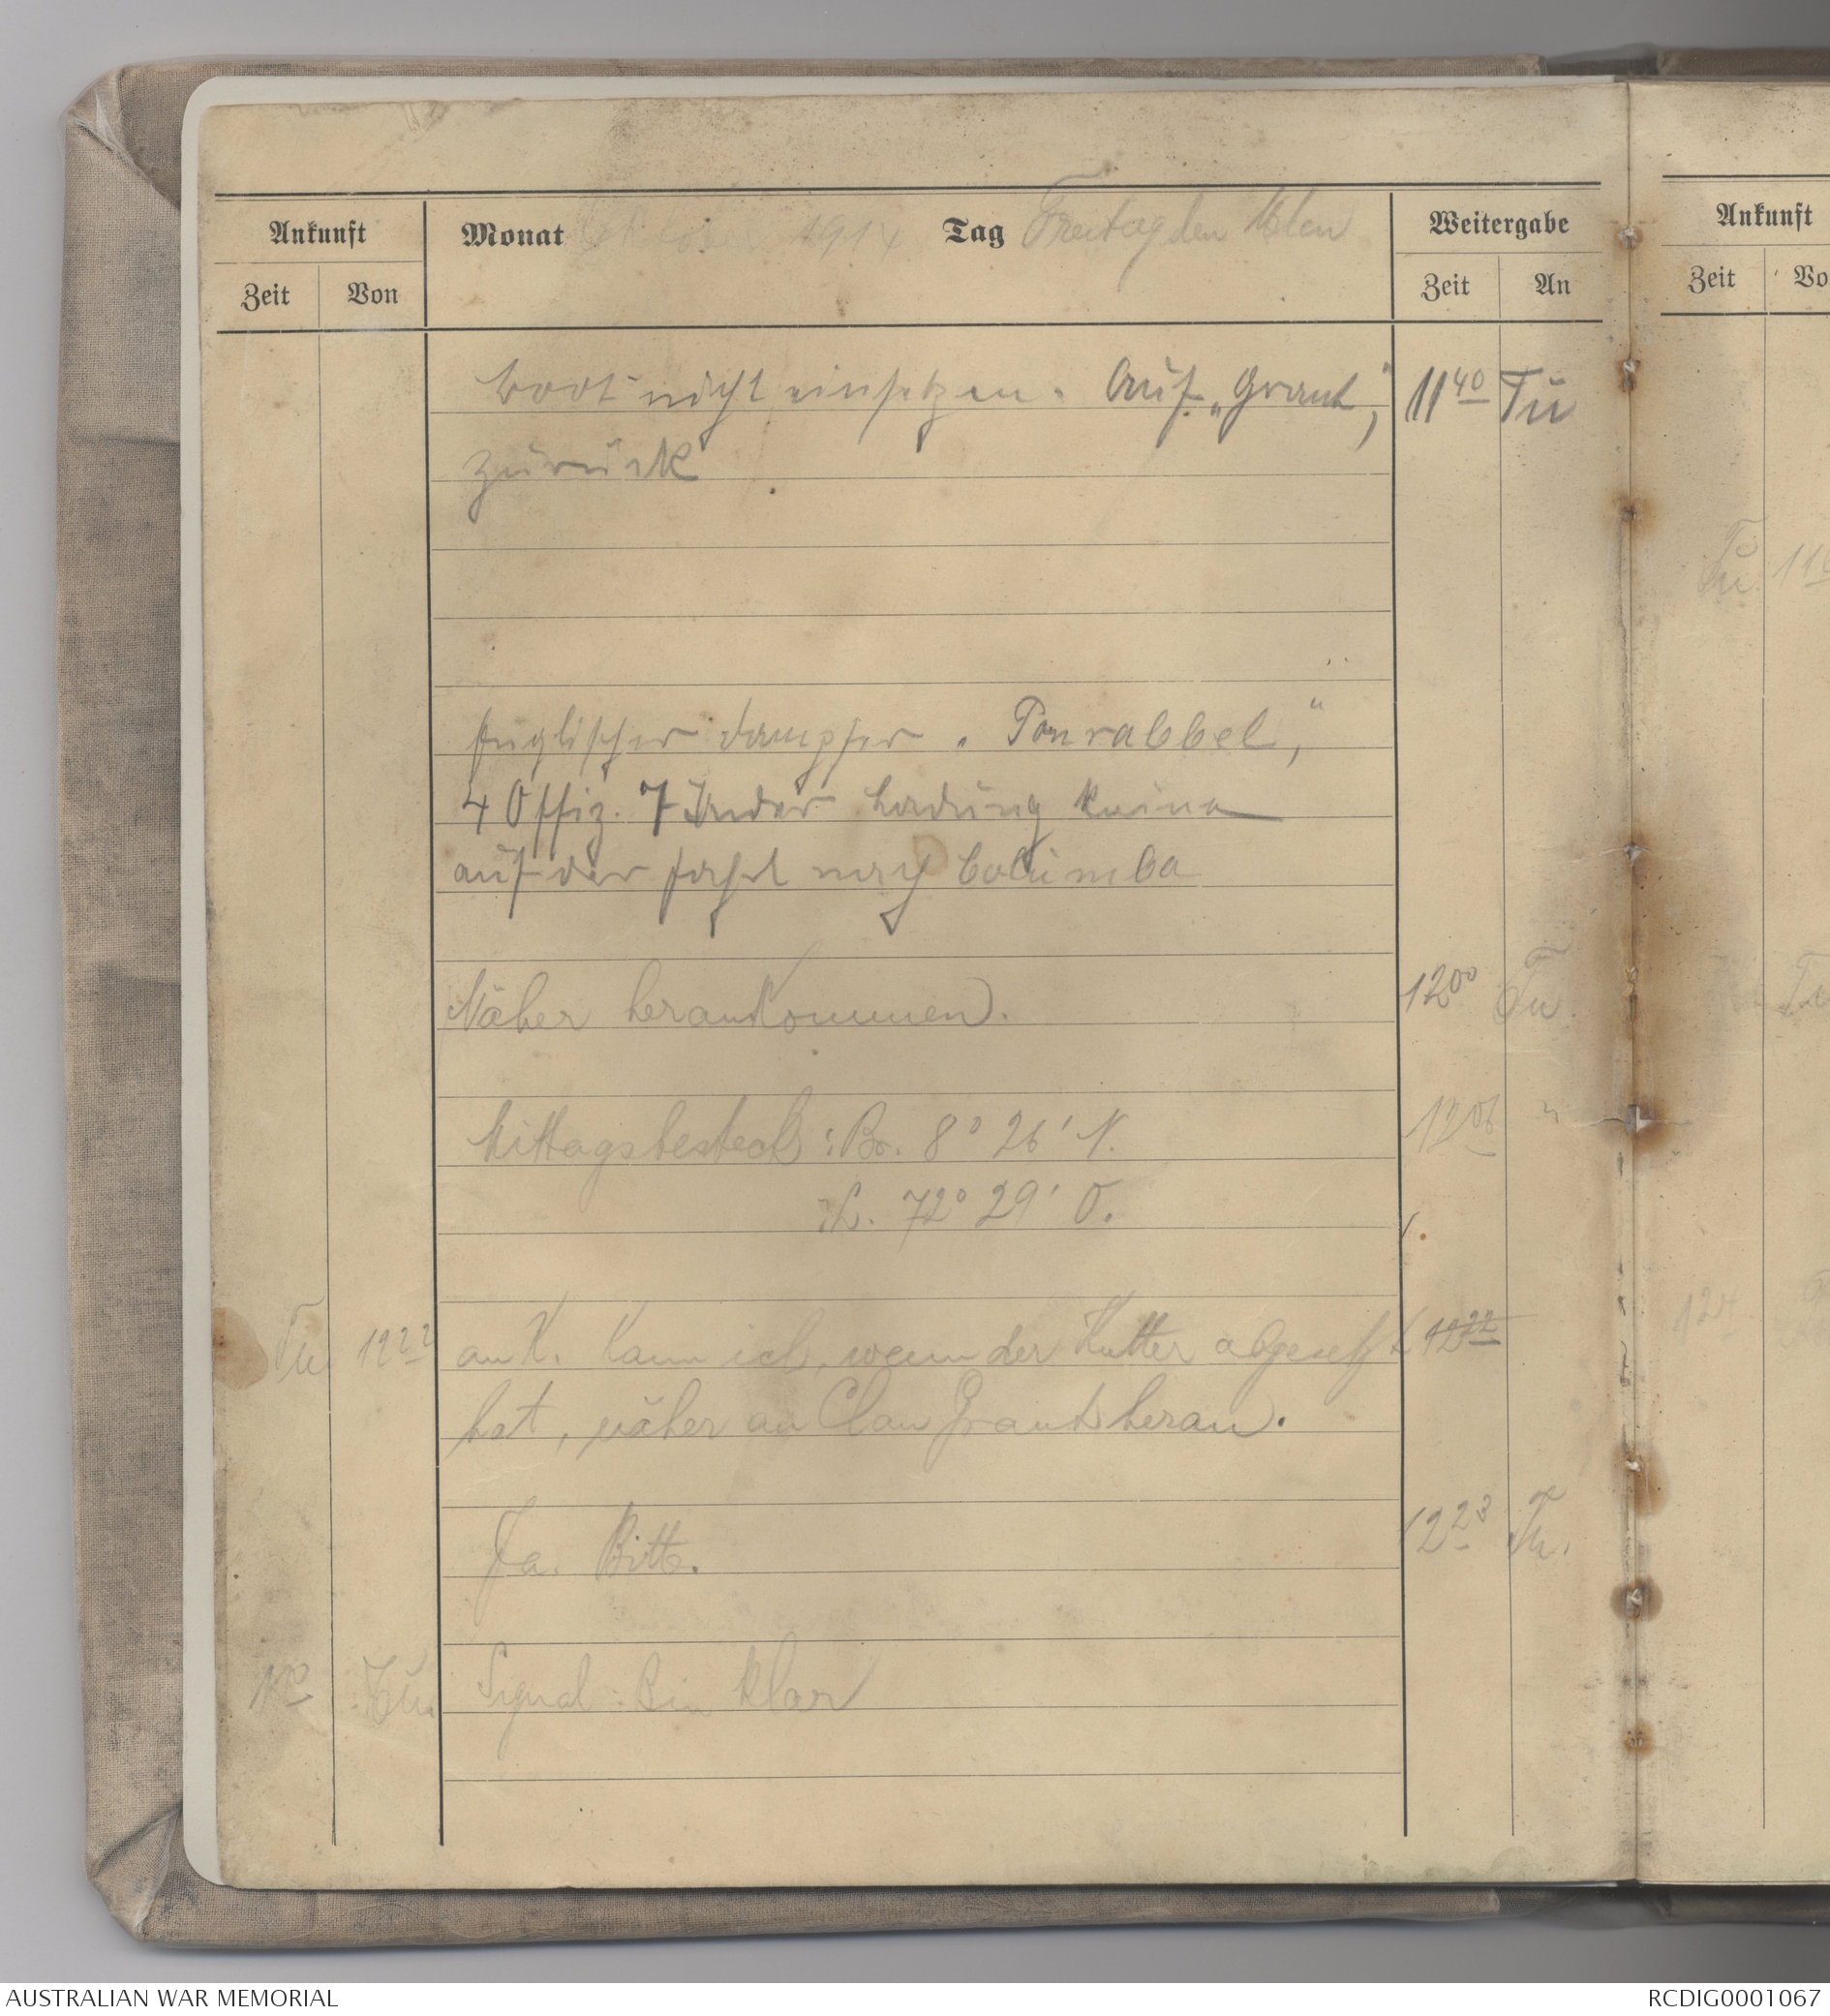 Ankunft Monat Oktober 1914 Tag Freitag den 16ten Weitergabe
Zeit Von Zeit An
Boot nicht einsetzen. Auf „Grant“, 11 40 Tü
zurück
Englischer Dampfer „Ponrabbel“,
4 Offiz. 7 Inder Ladung keine
auf der Fahrt nach Columba
Näher herankommen. 12 00 Tü.
Mittagsbesteck: Br. 8° 26' N. 12 06 "
L. 72° 29' O.
Tü 12 22 an K. Kann ich, wenn der Kutter abgesetzt 12 22
hat, näher an Clan Grant heran.
Ja. Bitte. 12 23 Tü.
Signal: Bin klar
Ankunft
Zeit Vo
Tü 11
Tü
AUSTRALIAN WAR MEMORIAL RCDIG0001067